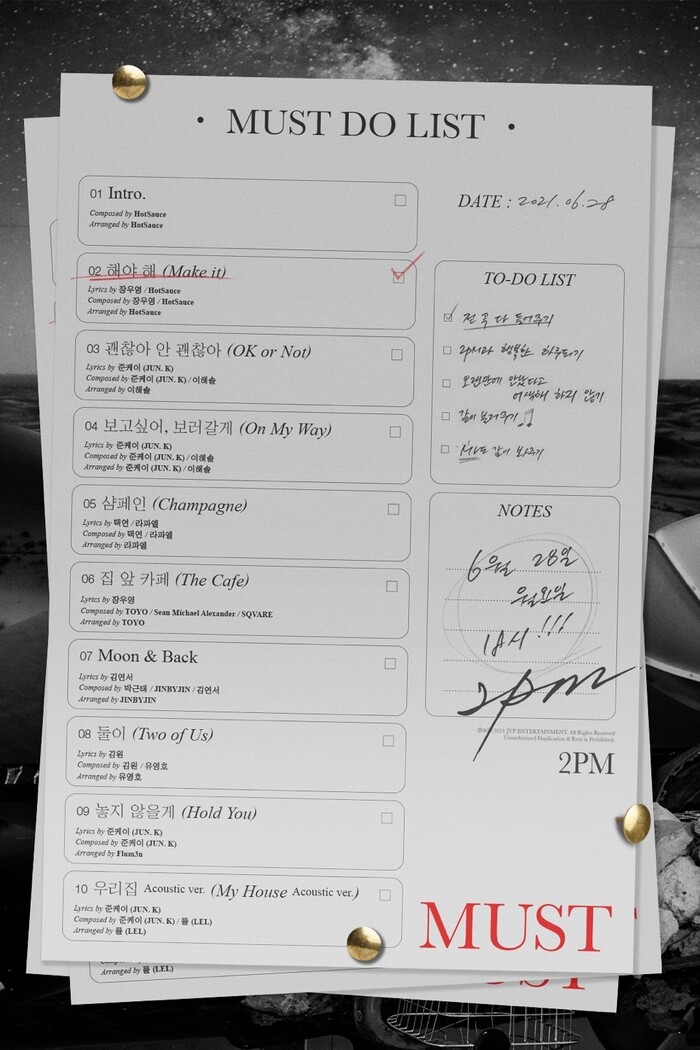 • MUST DO LIST •
01 Intro.
Composed by HotSauce
Arranged by HotSauce
02 해야 해 (Make it)
Lyrics by 장우영 / HotSauce
Composed by 장우영 / HotSauce
Arranged by HotSauce
03 괜찮아 안 괜찮아 (OK or Not)
Lyrics by 준케이 (JUN. K)
Composed by 준케이 (JUN. K) / 이해솔
Arranged by 이해솔
04 보고싶어, 보러갈게 (On My Way)
Lyrics by 준케이 (JUN. K)
Composed by 준케이 (JUN. K) / 이해솔
Arranged by 준케이 (JUN. K) / 이해솔
05 샴페인 (Champagne)
Lyrics by 택연 / 라파엘
Composed by 택연 / 라파엘
Arranged by 라파엘
06 집 앞 카페 (The Cafe)
Lyrics by 장우영
Composed by TOYO / Sean Michael Alexander / SQVARE
Arranged by TOYO
07 Moon & Back
Lyrics by 김연서
Composed by 박근태 / JINBYJIN / 김연서
Arranged by JINBYJIN
08 둘이 (Two of Us)
Lyrics by 김원
Composed by 김원 / 유영호
Arranged by 유영호
09 놓지 않을게 (Hold You)
Lyrics by 준케이 (JUN. K)
Composed by 준케이 (JUN. K)
Arranged by Flum3n
10 우리집 Acoustic ver. (My House Acoustic ver.)
Lyrics by 준케이 (JUN. K)
Composed by 준케이 (JUN. K) / 뜰 (LEL)
Arranged by 뜰 (LEL)
DATE : 2021.06.28
TO-DO LIST
전 곡 다 들어주기
2PM과 행복한 하루되기
오랜만에 만났다고
어색해 하지 않기
같이 불러주기
무대도 같이 봐주기
NOTES
6월 28일
월요일
!!!
2pm
2021 JYP ENTERTAINMENT. All Rights Reserved
Unauthorized Duplication & Rent is Prohibited.
2PM
MUST
Arranged by 뜰 (LEL)